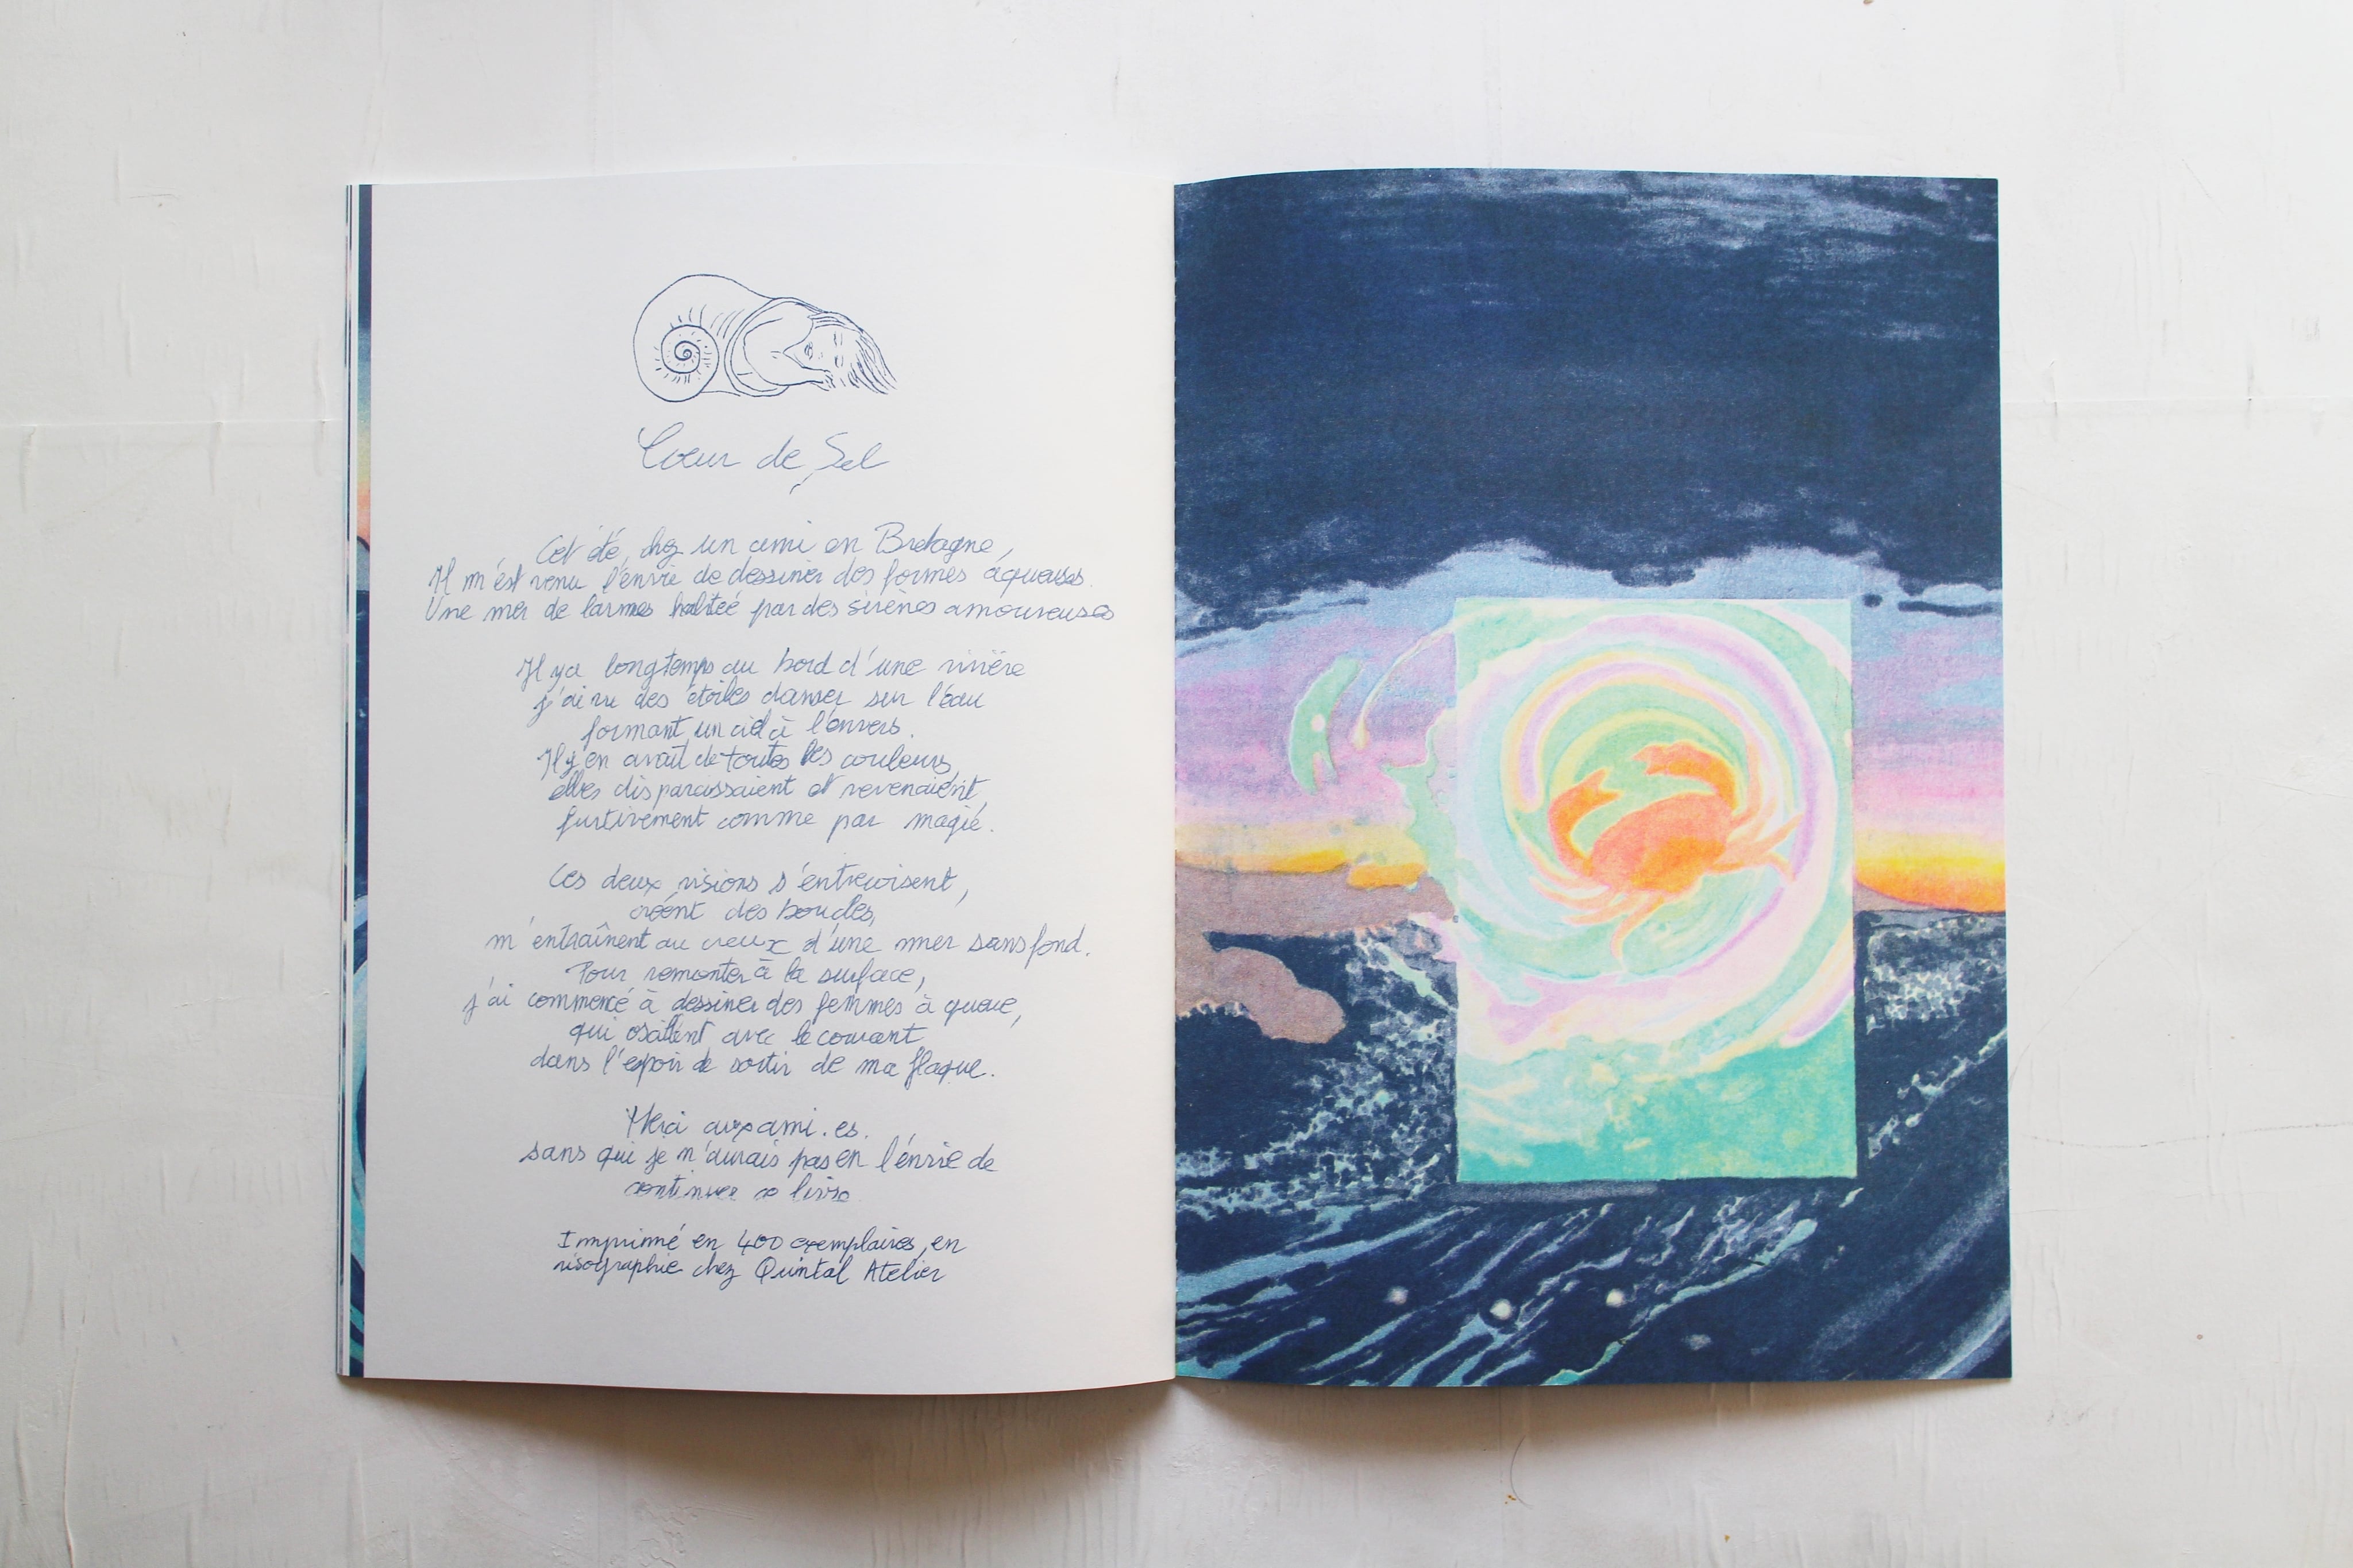 Cœur de Sel
Cet été, chez un ami en Bretagne,
Il m'est venu l'envie de dessiner des formes aqueuses.
Une mer de larmes habiteé par des sirènes amoureuses
Il y a longtemps au bord d'une rivière
j'ai vu des étoiles danser sur l'eau
formant un ciel à l'envers.
Il y en avait de toutes les couleurs,
elles disparaissaient et revenaient,
furtivement comme par magie.
Ces deux visions s'entrecroisent,
créent des boucles,
m'entraînent au creux d'une mer sans fond.
Pour remonter à la surface,
j'ai commencé à dessiner des femmes à queue,
qui oscillent avec le courant
dans l'espoir de sortir de ma flaque.
Merci aux ami.es.
sans qui je n'aurais pas eu l'envie de
continuer ce livre
Imprimé en 400 exemplaires, en
risographie chez Quintal Atelier